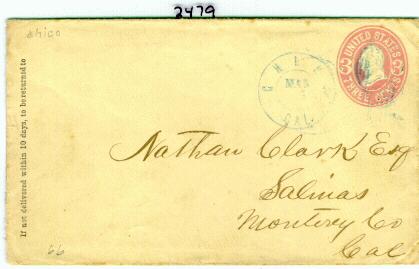 2479
chico
UNITED STATES
3 3
THREE CENTS
CHI
MAR
CAL.
If not delivered within 10 days, to be returned to
Nathan Clark Esq
Salinas
Monterey Co
Cal
66